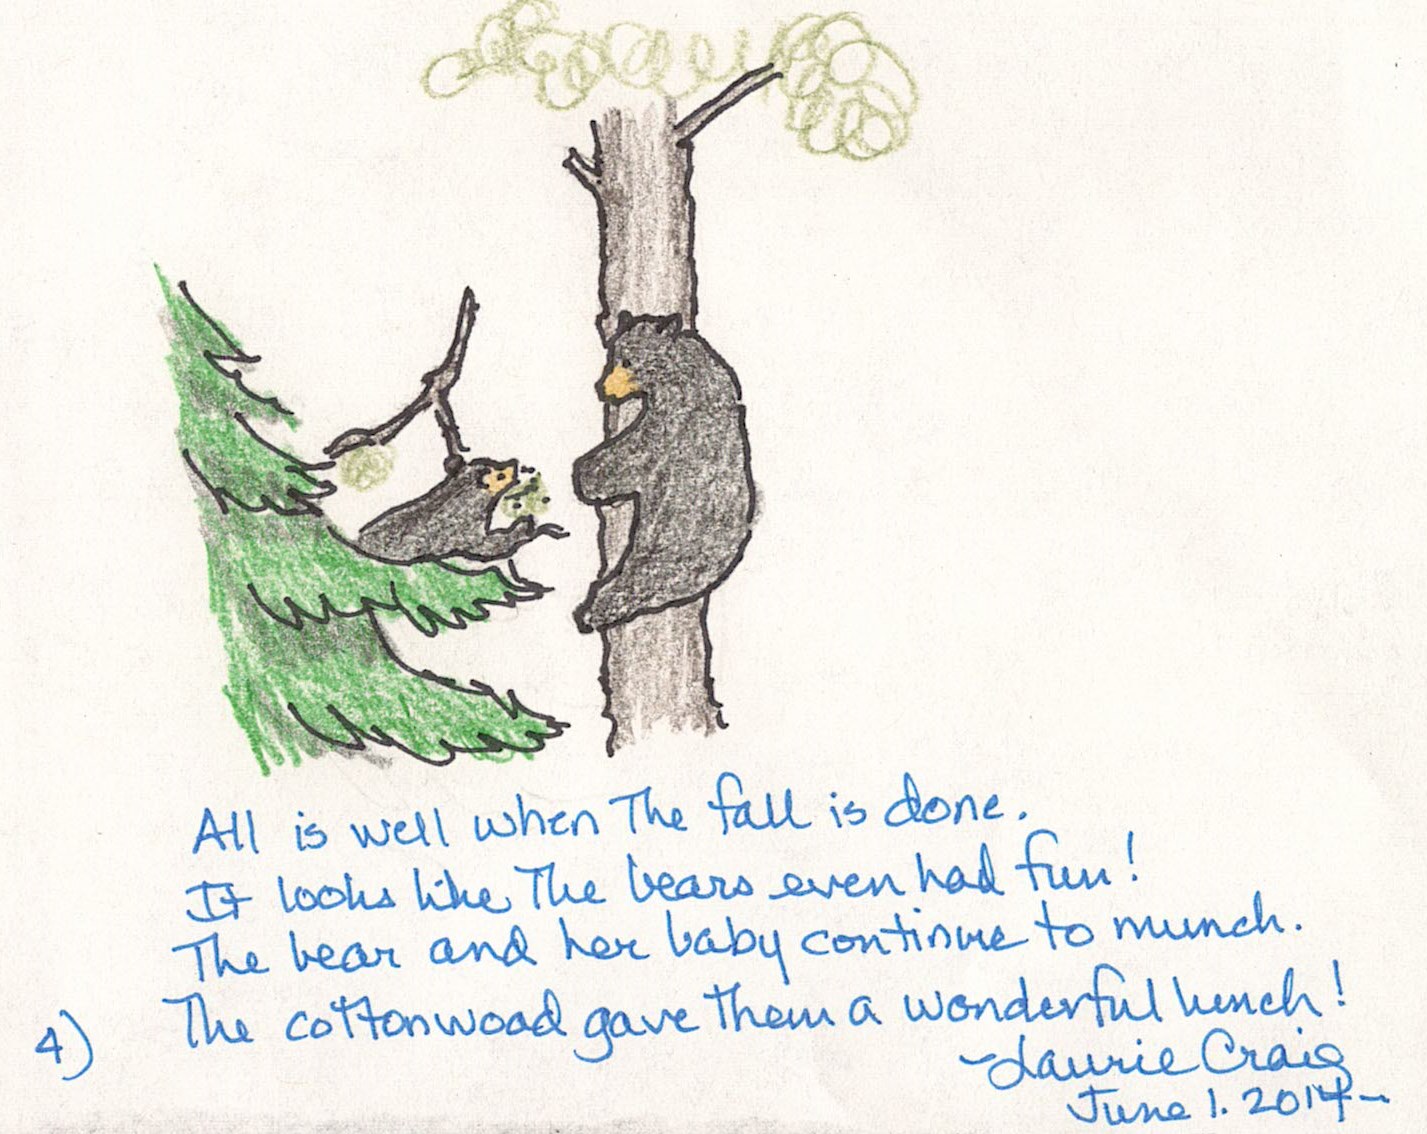 All is well when The fall is done.
It looks like The bears even had fun!
The bear and her baby continue to munch.
4) The cottonwood gave Them a wonderful lunch!
~Laurie Craig
June 1. 2014~